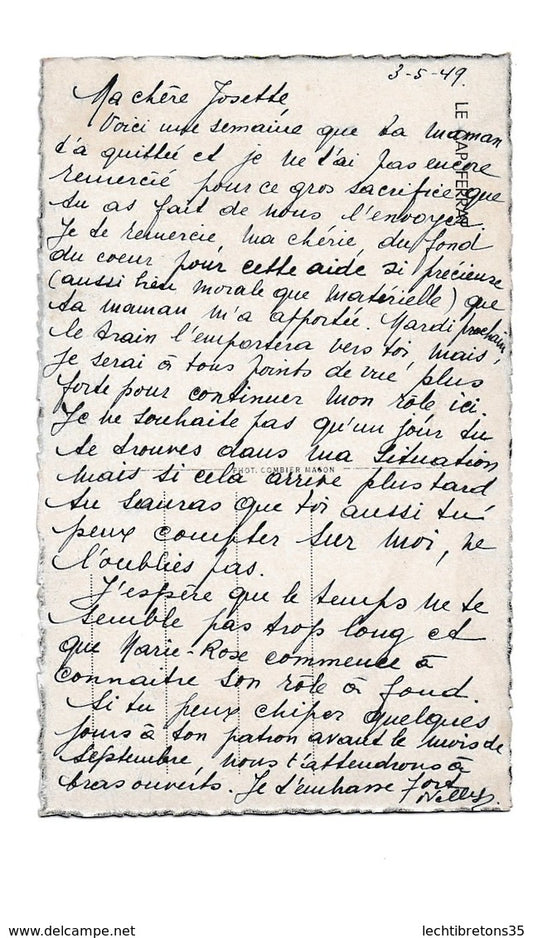 3-5-49.
Ma chère Josette
Voici une semaine que ta maman
t'a quittée et je ne t'ai pas encore
remercié pour ce gros sacrifice que
tu as fait de nous l'envoyer.
Je te remercie, ma chérie, du fond
du coeur pour cette aide si précieuse
(aussi bien morale que matérielle) que
ta maman m'a apportée. Mardi prochain
le train l'emportera vers toi, mais,
je serai à tous points de vue, plus
forte pour continuer mon rôle ici.
Je ne souhaite pas qu'un jour tu
te trouves dans ma situation
mais si cela arrive plus tard
tu sauras que toi aussi tu
peux compter sur moi, ne
l'oublies pas.
J'espère que le temps ne te
semble pas trop long et
que Marie-Rose commence à
connaitre son rôle à fond.
Si tu peux chiper quelques
jours à ton patron avant le mois de
septembre, nous t'attendrons à
bras ouverts. Je t'embrasse fort
Nelly.
LE CAP FERRAT
PHOT. COMBIER MACON
delcampe.net
lechtibretons35